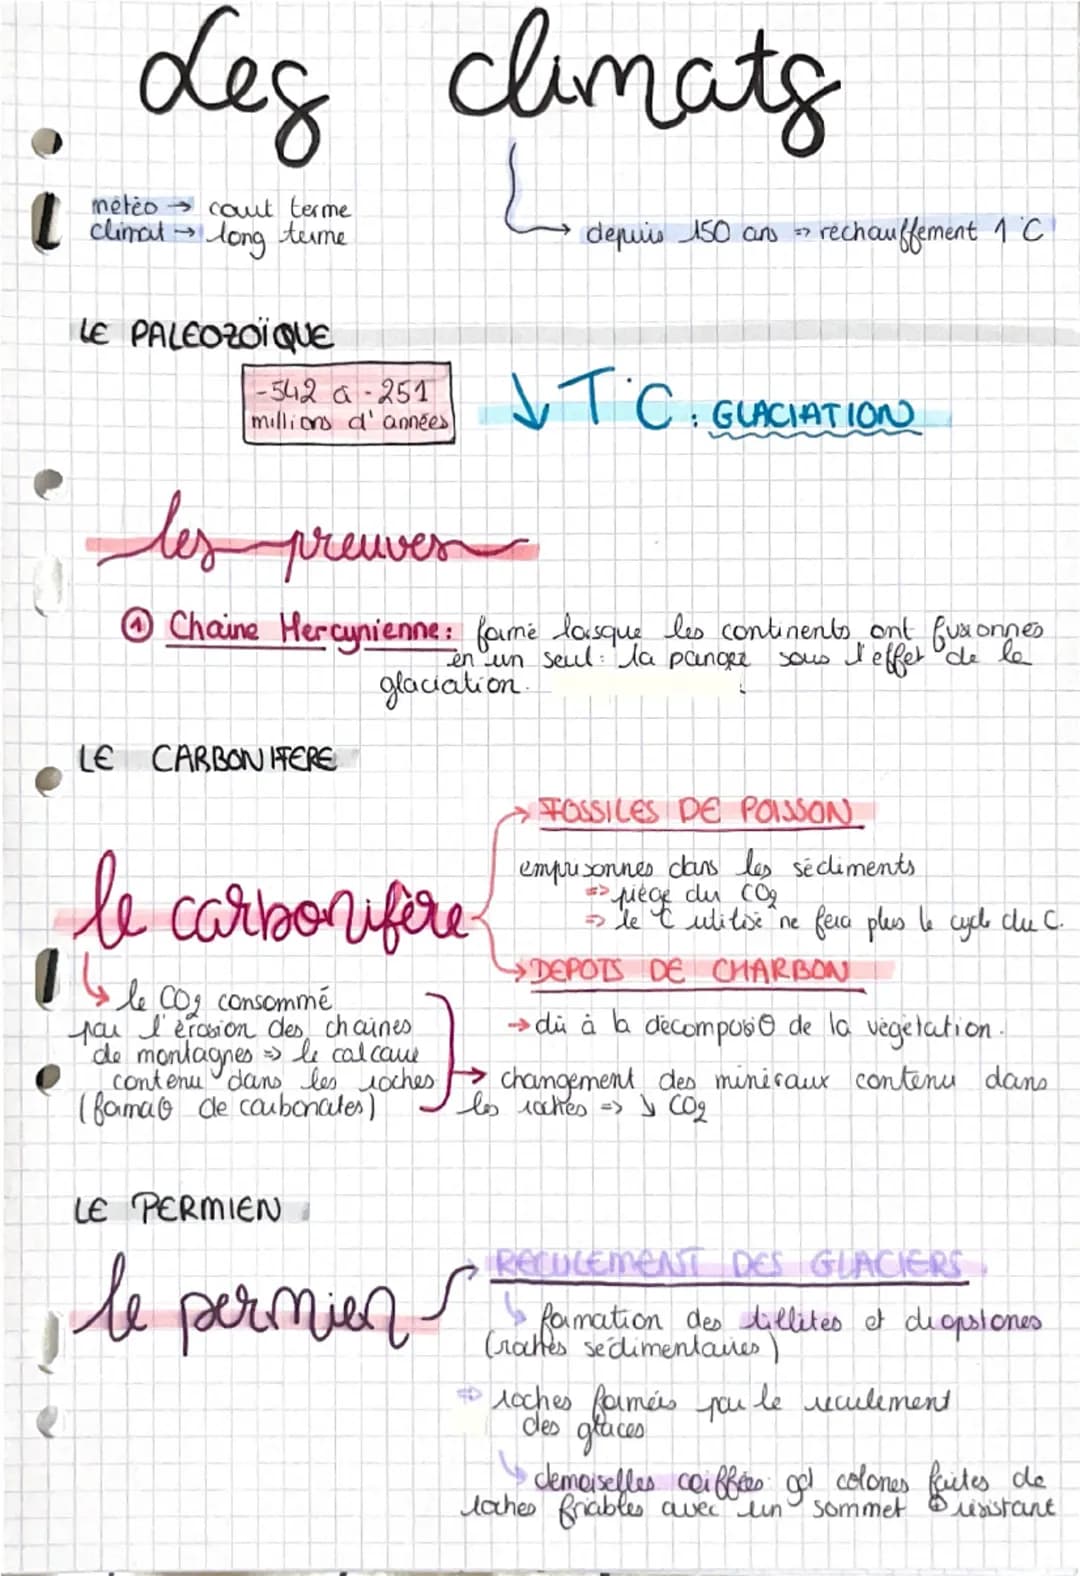 des climats
météo → court terme
climat → long terme
→ depuis 150 ans => réchauffement 1°C
LE PALEOZOÏQUE
-542 à -251
millions d'années
↓ T°C : GLACIATION
les preuves
① Chaine Hercynienne : formé lorsque les continents ont fusionnés
en un seul : la pangée sous l'effet de la
glaciation.
LE CARBONIFERE
→ FOSSILES DE POISSON
emprisonnés dans les sédiments
=> piège du CO2
=> le C utilisé ne fera plus le cycle du C.
le carbonifère
→ DEPOTS DE CHARBON
→ dû à la décomposiO de la végétation.
↳ le CO2 consommé
par l'érosion des chaines
de montagnes => le calcaire
contenu dans les roches
(formaO de carbonates)
→ changement des minéraux contenu dans
les roches => ↓ CO2
LE PERMIEN
RECULEMENT DES GLACIERS
le permien
↳ formation des tillites et dropstones
(roches sédimentaires)
=> roches formées par le reculement
des glaces
↳ demoiselles coiffées gd colones faites de
roches friables avec un sommet résistant